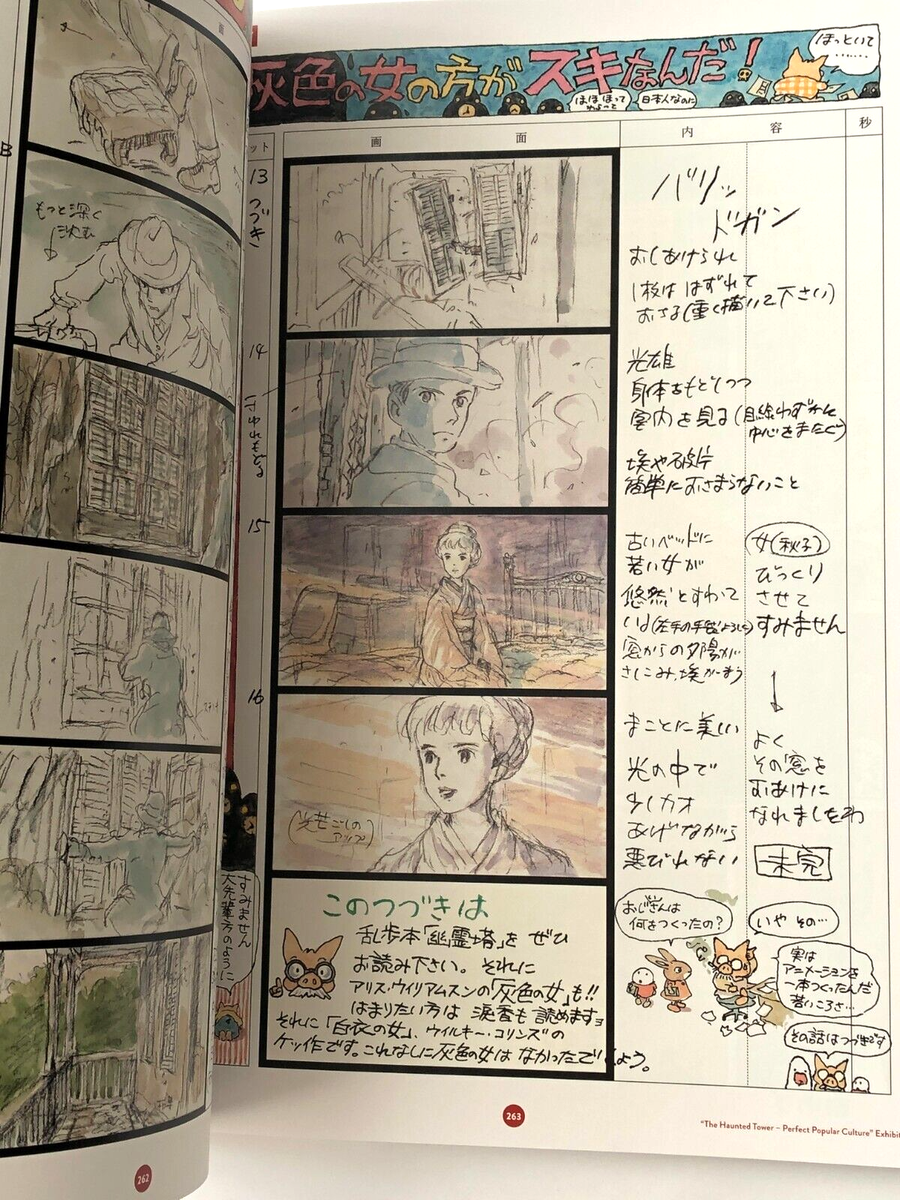 もっと深く
沈む
262
灰色の女の方がスキなんだ!
ほっといて
……
日本人なのに
画面
内容
秒
13
つづき
バリッ
ドガン
おしあけられ
1枚は はずれて
おさる(重く描いて下さい)
14
光雄
身体をもどしつつ
室内を見る(目線わずかに
埃や破片
簡単におさまらないこと
15
古いベッドに
若い女が
悠然とすわって
いる(左手の手袋よろしく)
窓からの夕陽が
さしこみ、埃がまう
女(秋子)
びっくり
させて
すみません
16
(光芒ごしの
アップ)
まことに美しい
光の中で
少しカオ
あげながら
悪びれない
よく
その窓を
おあけに
なれましたわ
未完
すみません
大先輩方のように
このつづきは
乱歩本「幽霊塔」を ぜひ
お読み下さい。それに
アリス・ウィリアムスンの「灰色の女」も!!
はまりたい方は 涙香も読めますョ
それに「白衣の女」、ウイルキー・コリンズの
ケッ作です。これなしに灰色の女は なかったでしょう。
おじさんは
何をつくったの?
いや その…
実は
アニメーションを
一本つくったんだ
若いころさ…
その話はつづきです
263
"The Haunted Tower – Perfect Popular Culture" Exhibit